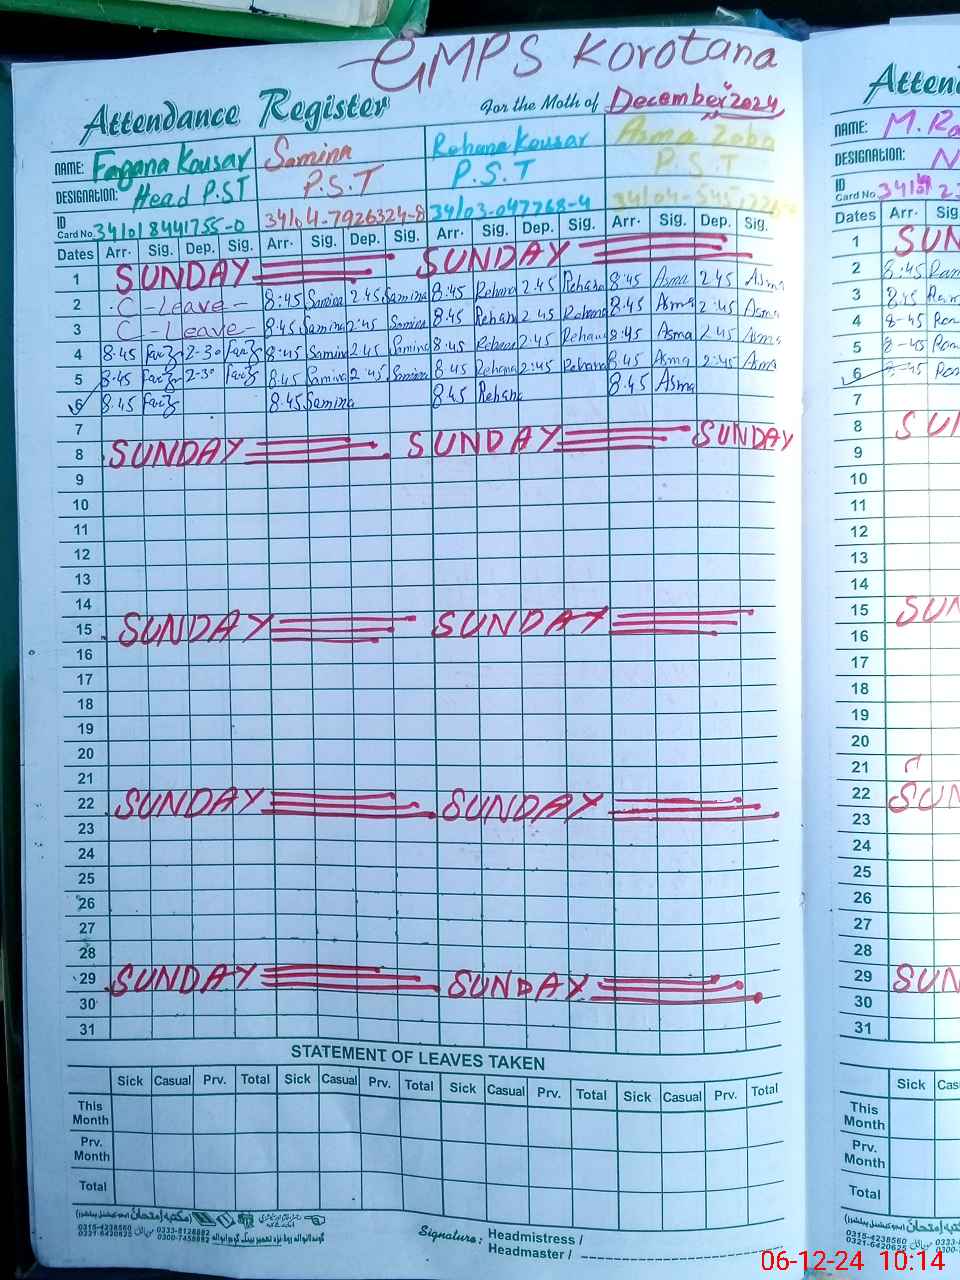 GMPS Korotana
Attendance Register For the Moth of December 2024
NAME: Fagana Kousar Samina Rehana Kousar Asma Zeba
DESIGNATION: Head P.S.T P.S.T P.S.T P.S.T
ID Card No. 34101 8441755-0 34104-7926324-8 34103-047768-4
Dates Arr. Sig. Dep. Sig. Arr. Sig. Dep. Sig. Arr. Sig. Dep. Sig. Arr. Sig. Dep. Sig.
1 SUNDAY SUNDAY
2 C-Leave- 8:45 Samina 2.45 Samina 8.45 Rehana 2.45 Rehana 8:45 Asma 2.45 Asma
3 C-Leave- 8.45 Samina 2:45 Samina 8.45 Rehana 2.45 Rehana 8.45 Asma 2:45 Asma
4 8.45 2-30 8:45 Samina 2.45 Samina 8:45 Rehana 2:45 Rehana 8:45 Asma 2.45 Asma
5 8.45 2-30 8.45 Samina 2.45 Samina 8.45 Rehana 2:45 Rehana 8.45 Asma 2:45 Asma
6 8.45 8.45 Samina 8.45 Rehana 8.45 Asma
7
8 SUNDAY SUNDAY SUNDAY
9
10
11
12
13
14
15 SUNDAY SUNDAY
16
17
18
19
20
21
22 SUNDAY SUNDAY
23
24
25
26
27
28
29 SUNDAY SUNDAY
30
31
STATEMENT OF LEAVES TAKEN
Sick Casual Prv. Total Sick Casual Prv. Total Sick Casual Prv. Total Sick Casual Prv. Total
This Month
Prv. Month
Total
0315-4238560 0333-8128882
0321-6420625 0300-7458882
Signature: Headmistress /
Headmaster /
NAME:
DESIGNATION:
ID Card No.
Dates Arr. Sig.
1 SUN
2 8:45
3 8.45
4 8-45
5 8-45
6
7
8 SUN
9
10
11
12
13
14
15 SUN
16
17
18
19
20
21
22 SUN
23
24
25
26
27
28
29 SUN
30
31
Sick
This Month
Prv. Month
Total
0315-4238560
0321-6420625
06-12-24 10:14